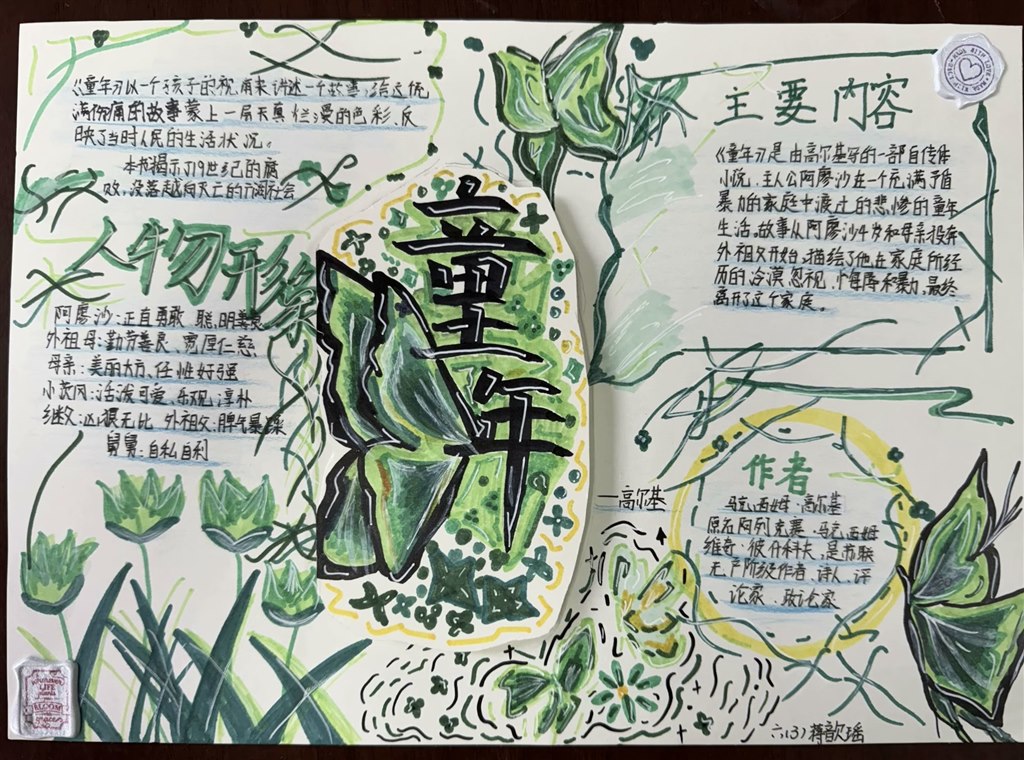 《童年》以一个孩子的视角来讲述一个故事,给这优
满伤痛的故事蒙上一层天真烂漫的色彩,反
映了当时人民的生活状况。
本书揭示了19世纪的腐
败,没落趋向灭亡的社会
人物形象
阿廖沙:正直勇敢 聪明善良
外祖母:勤劳善良、宽厚仁慈
母亲:美丽大方、任性好强
小茨冈:活泼可爱、乐观、淳朴
继父:凶狠无比 外祖父:脾气暴躁
舅舅:自私自利
童年
—高尔基
主要内容
《童年》是由高尔基写的一部自传体
小说,主人公阿廖沙在一个充满矛盾
暴力的家庭中渡过的悲惨的童年
生活,故事从阿廖沙4岁和母亲投奔
外祖父开始,描绘了他在家庭所经
历的冷漠忽视、侮辱和暴力,最终
离开了这个家庭。
作者
马克西姆·高尔基
原名阿列克赛·马克西姆
维奇·彼什科夫,是苏联
无产阶级作者、诗人、评
论家、政论家
MADE WITH LOVE
LIFE
BLOOM
grace
六(3)蒋歆瑶